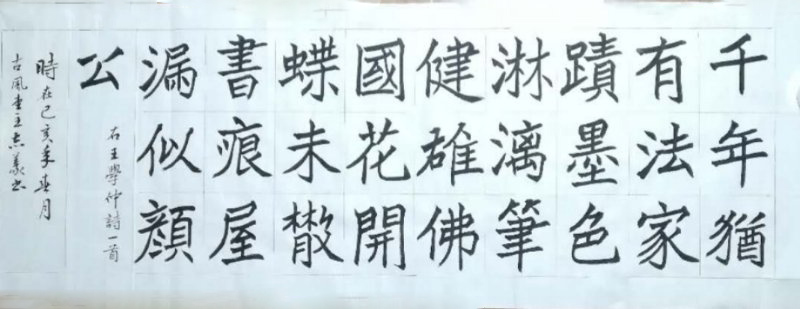 千年猶
有法家
蹟墨色
淋漓筆
健雄佛
國花開
蝶未散
書痕屋
漏似顏
公
右王學仲詩一首
時在己亥年春月
古風堂主志義書